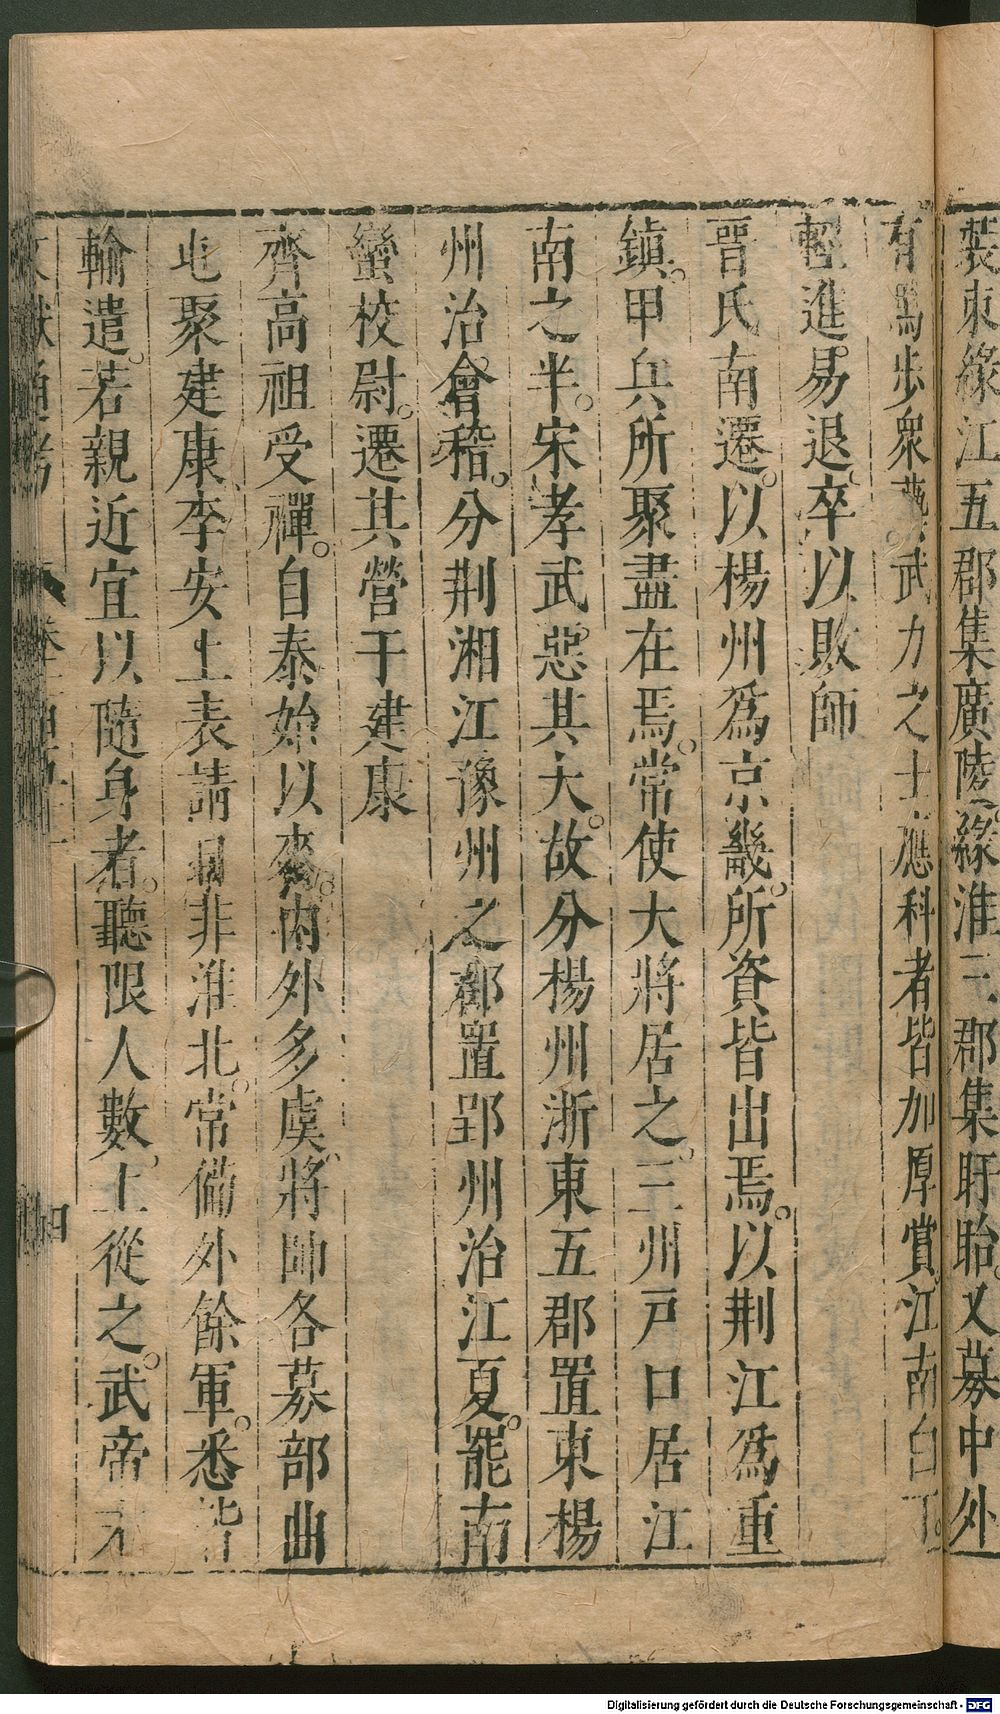 裝束緣江五郡集廣陵緣淮三郡集盱眙又募中外
有馬步衆藝武力之士應科者皆加厚賞江南白丁
輕進易退卒以敗師
晉氏南遷以楊州爲京畿所資皆出焉以荆江爲重
鎮甲兵所聚盡在焉常使大將居之三州戸口居江
南之半宋孝武惡其大故分楊州浙東五郡置東楊
州治會稽分荆湘江豫州之郡置郢州治江夏罷南
蠻校尉遷其營于建康
齊高祖受禪自泰始以來内外多虞將帥各募部曲
屯聚建康李安上表請自非淮北常備外餘軍悉皆
輸遣若親近宜以隨身者聽限人數上從之武帝永
文獻通考 卷一百五十一 四
Digitalisierung gefördert durch die Deutsche Forschungsgemeinschaft - DFG